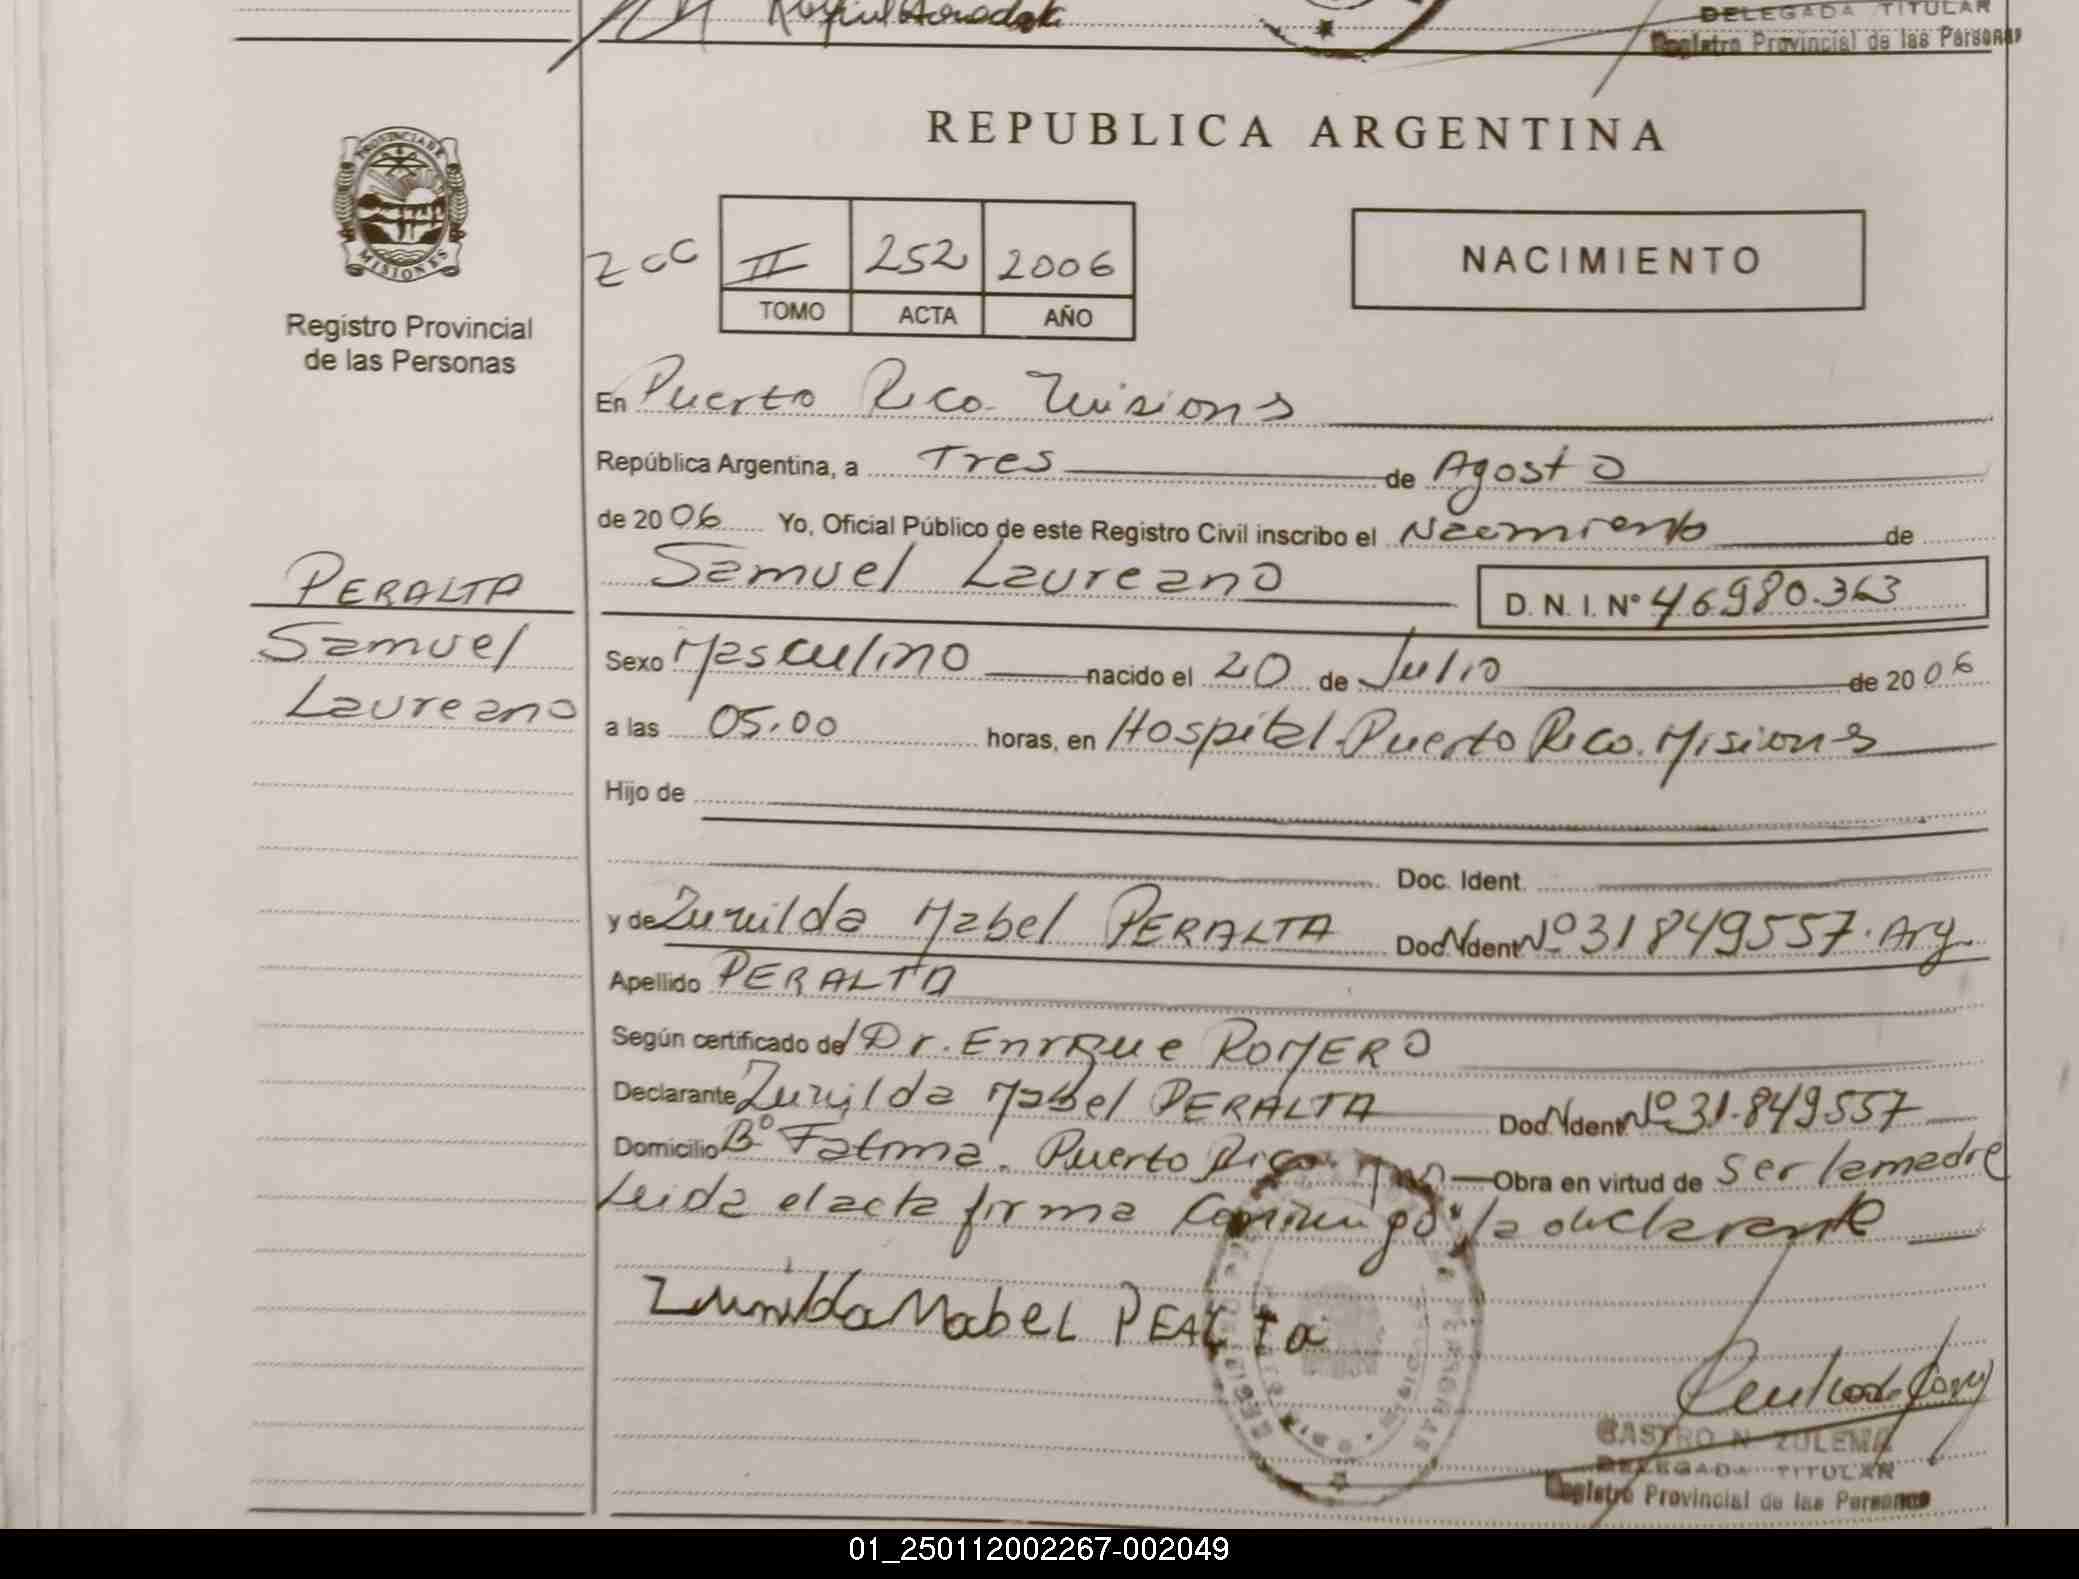 DELEGADA TITULAR
Registro Provincial de las Personas
PROVINCIA DE
MISIONES
Registro Provincial
de las Personas
REPUBLICA ARGENTINA
II 252 2006
TOMO ACTA AÑO
NACIMIENTO
En Puerto Rico Misiones
República Argentina, a Tres de Agosto
de 2006 Yo, Oficial Público de este Registro Civil inscribo el Nacimiento de
Samuel Laureano D. N. I. Nº 46.980.363
PERALTA
Samuel
Laureano
Sexo Masculino nacido el 20 de Julio de 2006
a las 05.00 horas, en Hospital Puerto Rico. Misiones
Hijo de
Doc. Ident.
y de Zunilda Mabel PERALTA Doc. Ident. Nº 31849557. Arg.
Apellido PERALTA
Según certificado del Dr. Enrique ROMERO
Declarante Zunilda Mabel PERALTA Doc. Ident. Nº 31.849557
Domicilio Bº Fatima. Puerto Rico Obra en virtud de ser la madre
Leida el acta firma conmigo la declarante
Zunilda MabeL PEALTa
CASTRO N. ZULEMA
DELEGADA TITULAR
Registro Provincial de las Personas
01_250112002267-002049